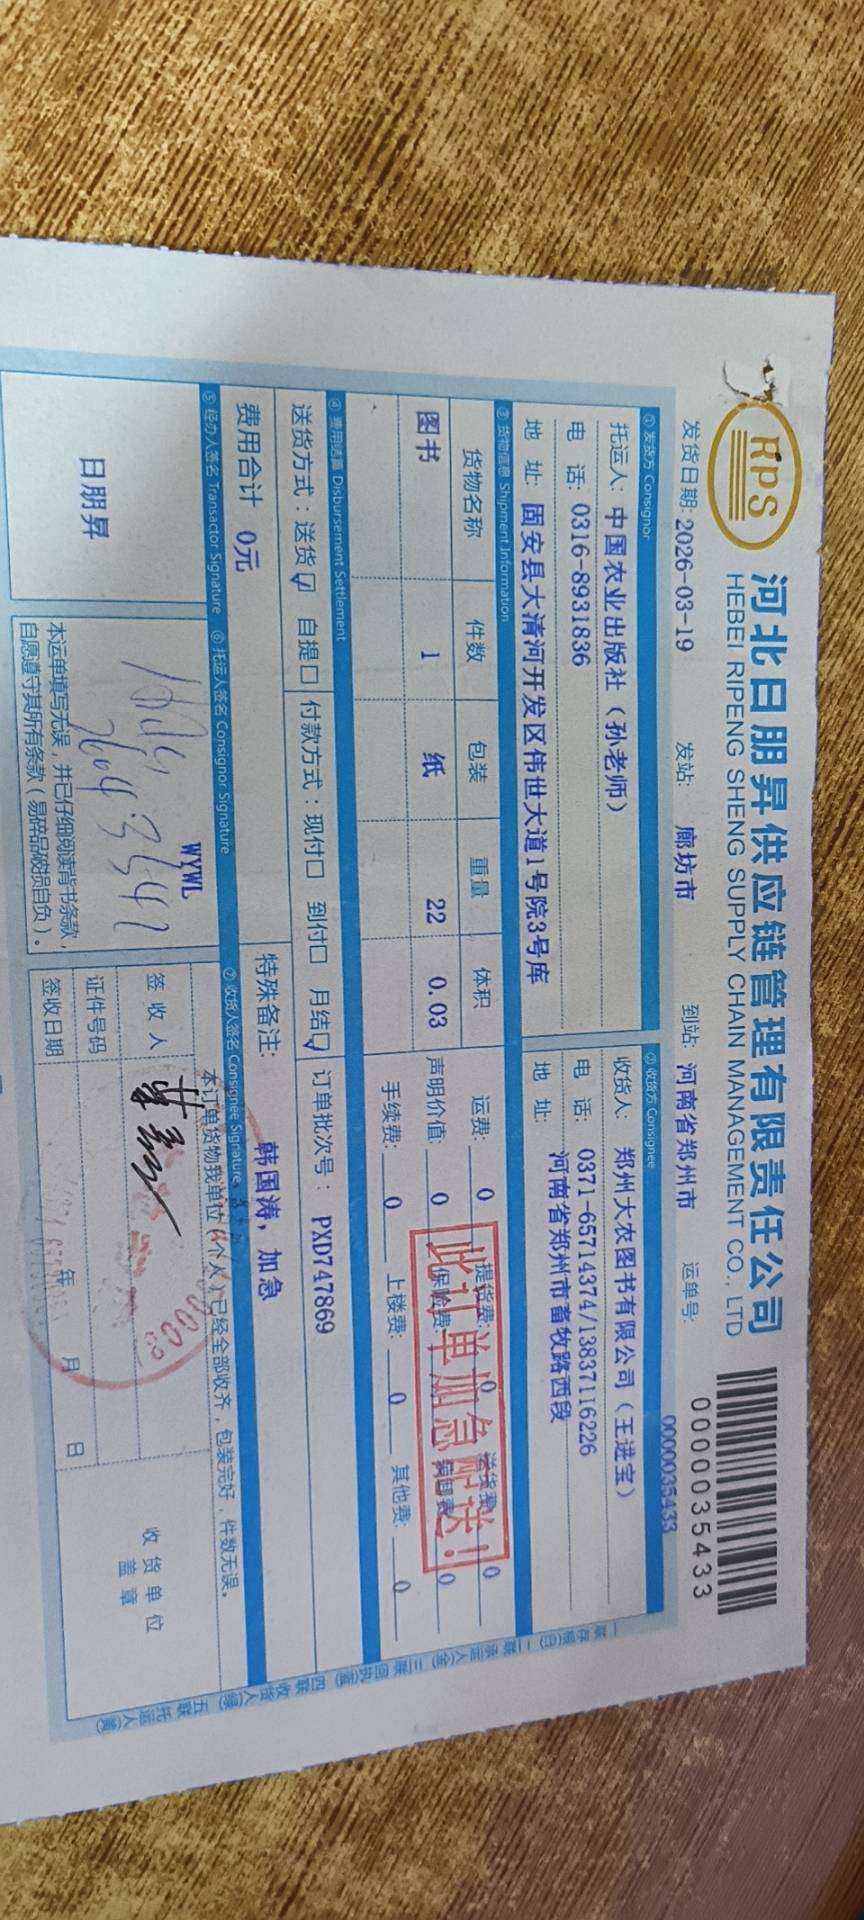 RPS
河北日朋昇供应链管理有限责任公司
HEBEI RIPENG SHENG SUPPLY CHAIN MANAGEMENT CO., LTD
0000035433
发货日期: 2026-03-19 发站: 廊坊市 到站: 河南省郑州市 运单号: 0000035433
① 发货方 Consignor
托运人: 中国农业出版社（孙老师）
电 话: 0316-8931836
地 址: 固安县大清河开发区伟世大道1号院3号库
② 收货方 Consignee
收货人: 郑州大农图书有限公司（王进宝）
电 话: 0371-65714374/13837116226
地 址: 河南省郑州市畜牧路西段
③ 货物信息 Shipment Information
货物名称 件数 包装 重量 体积
图书 1 纸 22 0.03
运费: 0 提货费: 0 送货费: 0
声明价值: 0 保险费: 0
手续费: 0 上楼费: 0 其他费: 0
此订单加急配送!
④ 费用结算 Disbursement Settlement
送货方式: 送货☑ 自提☐ 付款方式: 现付☐ 到付☐ 月结☑ 订单批次号: PXD747869
费用合计 0元 特殊备注: 韩国涛, 加急
⑤ 经办人签名 Transactor Signature
日朋昇
⑥ 托运人签名 Consignor Signature
WYWL
本运单填写无误, 并已仔细阅读背书条款,
自愿遵守其所有条款(易碎品破损自负)。
⑦ 收货人签名 Consignee Signature
本订单货物我单位(个人)已经全部收齐, 包装完好, 件数无误。
签 收 人
证件号码
签收日期 年 月 日
收货单位
盖章
一联存根(白) 二联承运人(金) 三联回执(蓝) 四联收货人(绿) 五联托运人(黄)